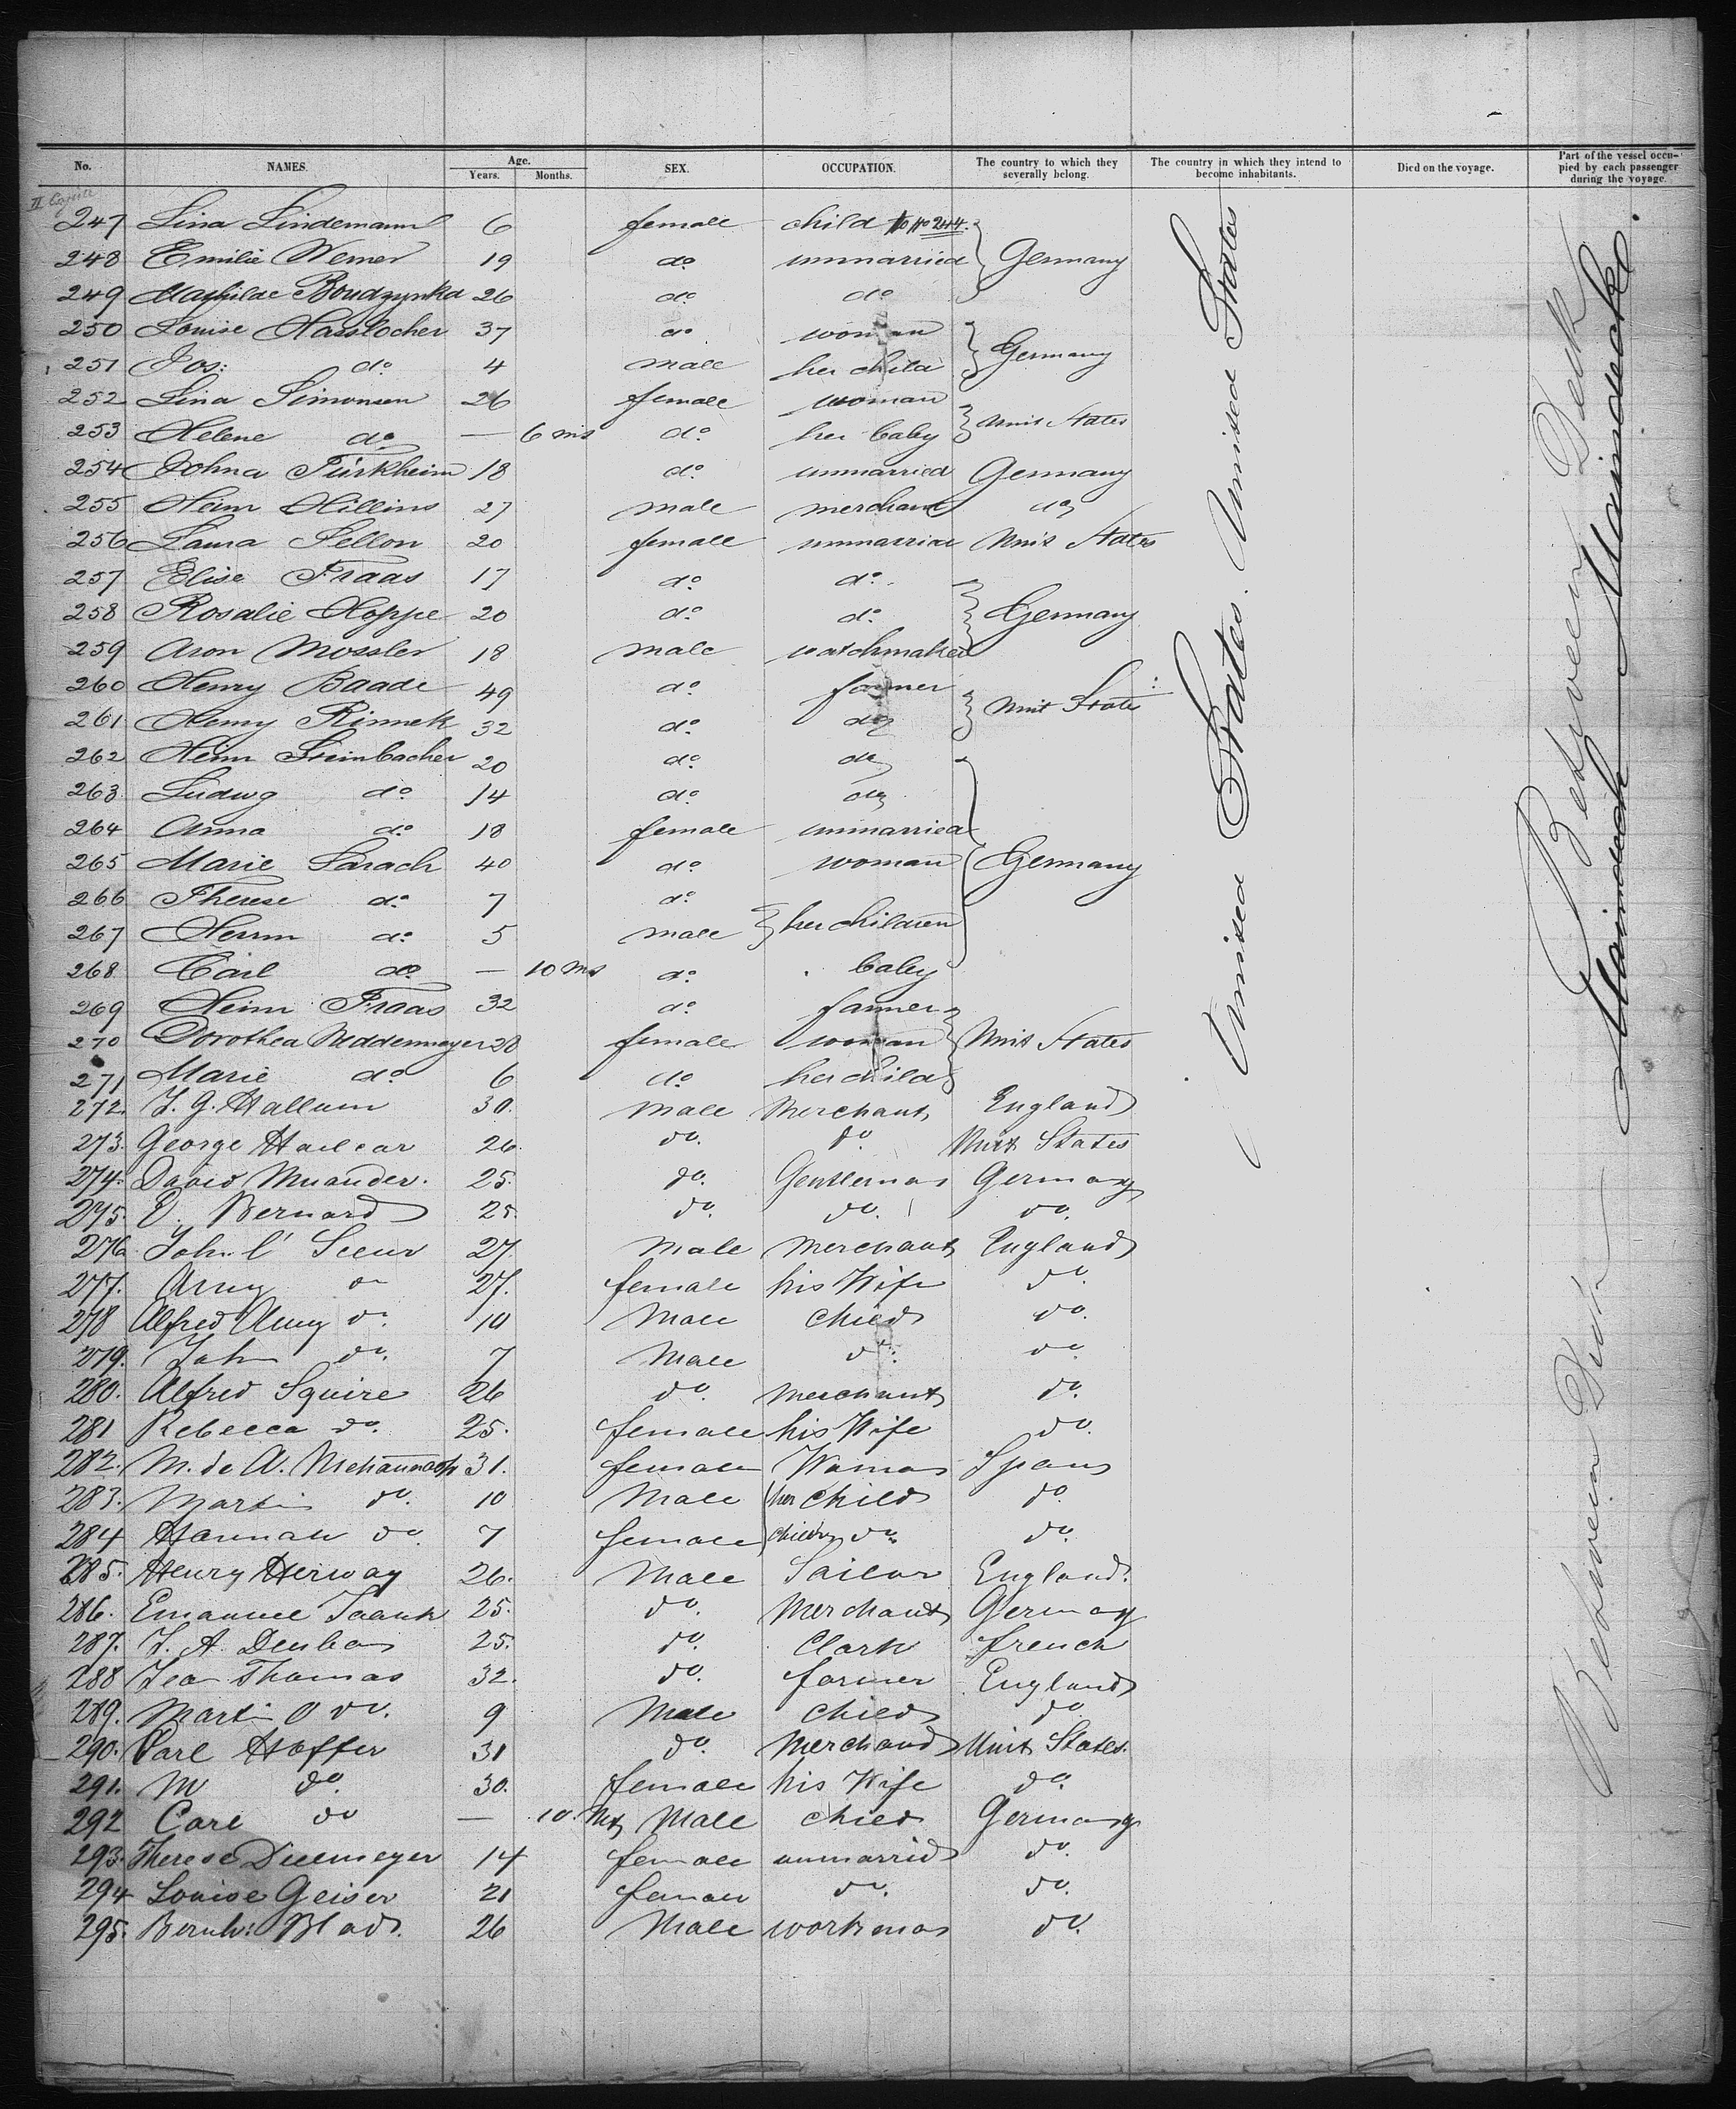 No. NAMES. Age. Years. Months. SEX. OCCUPATION. The country to which they severally belong. The country in which they intend to become inhabitants. Died on the voyage. Part of the vessel occupied by each passenger during the voyage.
II
247 Lina Lindemann 6 female child to No 244.
248 Emilie Werner 19 do unmarried Germany
249 Mathilde 26 do do
250 Louise Hasslocher 37 do woman
251 Jos: do 4 male her child Germany
252 Lina Simonsen 26 female woman
253 Helene do — 6 ms do her baby Unit States
254 Johna Türkheim 18 do unmarried Germany
255 Heinr Hillins 27 male merchant do
256 Laura Sellon 20 female unmarried Unit States
257 Elise Fraas 17 do do
258 Rosalie Hoppe 20 do do Germany
259 Aron Mossler 18 male watchmaker
260 Henry Baade 49 do farmer Unit States
261 Henry Rinnek 32 do do
262 Heinr Steinbacher 20 do do
263 Ludwg do 14 do do
264 Anna do 18 female unmarried
265 Marie Sarach 40 do woman Germany
266 Therese do 7 do
267 Herrm do 5 male her children
268 Carl do — 10 ms do baby
269 Heinr Fraas 32 do farmer
270 Dorothea Neddermeyer 28 female woman Unit States
271 Marie do 6 do her child
272. J. G. Hallum 30. Male Merchant England
273. George 26. do. do Unit States
274. David Muander. 25. do. Gentleman Germany
275. Bernard 25. do. do. do.
276. John l' Seeur 27. Male Merchant England
277. Amy do 27. female his Wife do.
278 Alfred Amy do. 10 Male Child do.
279. John do. 7 Male do. do
280. Alfred Squire 26 do. Merchant do.
281 Rebecca do. 25. female his Wife do.
282. M. de A. 31. female Woman Spain
283. Martin do. 10 Male her child do.
284 Hannah do. 7 female children do. do.
285. Henry Herway 26. Male Sailor England.
286. Emanuel 25. do. Merchant Germany
287. J. A. 25. do. Clark french
288 Thomas 32. do. farmer England
289. Martin O do. 9 Male Child do.
290. Carl Hoffer 31 do. Merchand Unit States.
291. M do. 30. female his Wife do.
292 Carl do — 10. Mts Male Child Germany
293. Therese Duemeyer 14 female unmarrid do.
294 Louise Geiser 21 female do. do.
295. Bernh: Blad. 26 Male workman do.
United States. United States
Between Deck
Maindeck Maindeck.
Between Deck